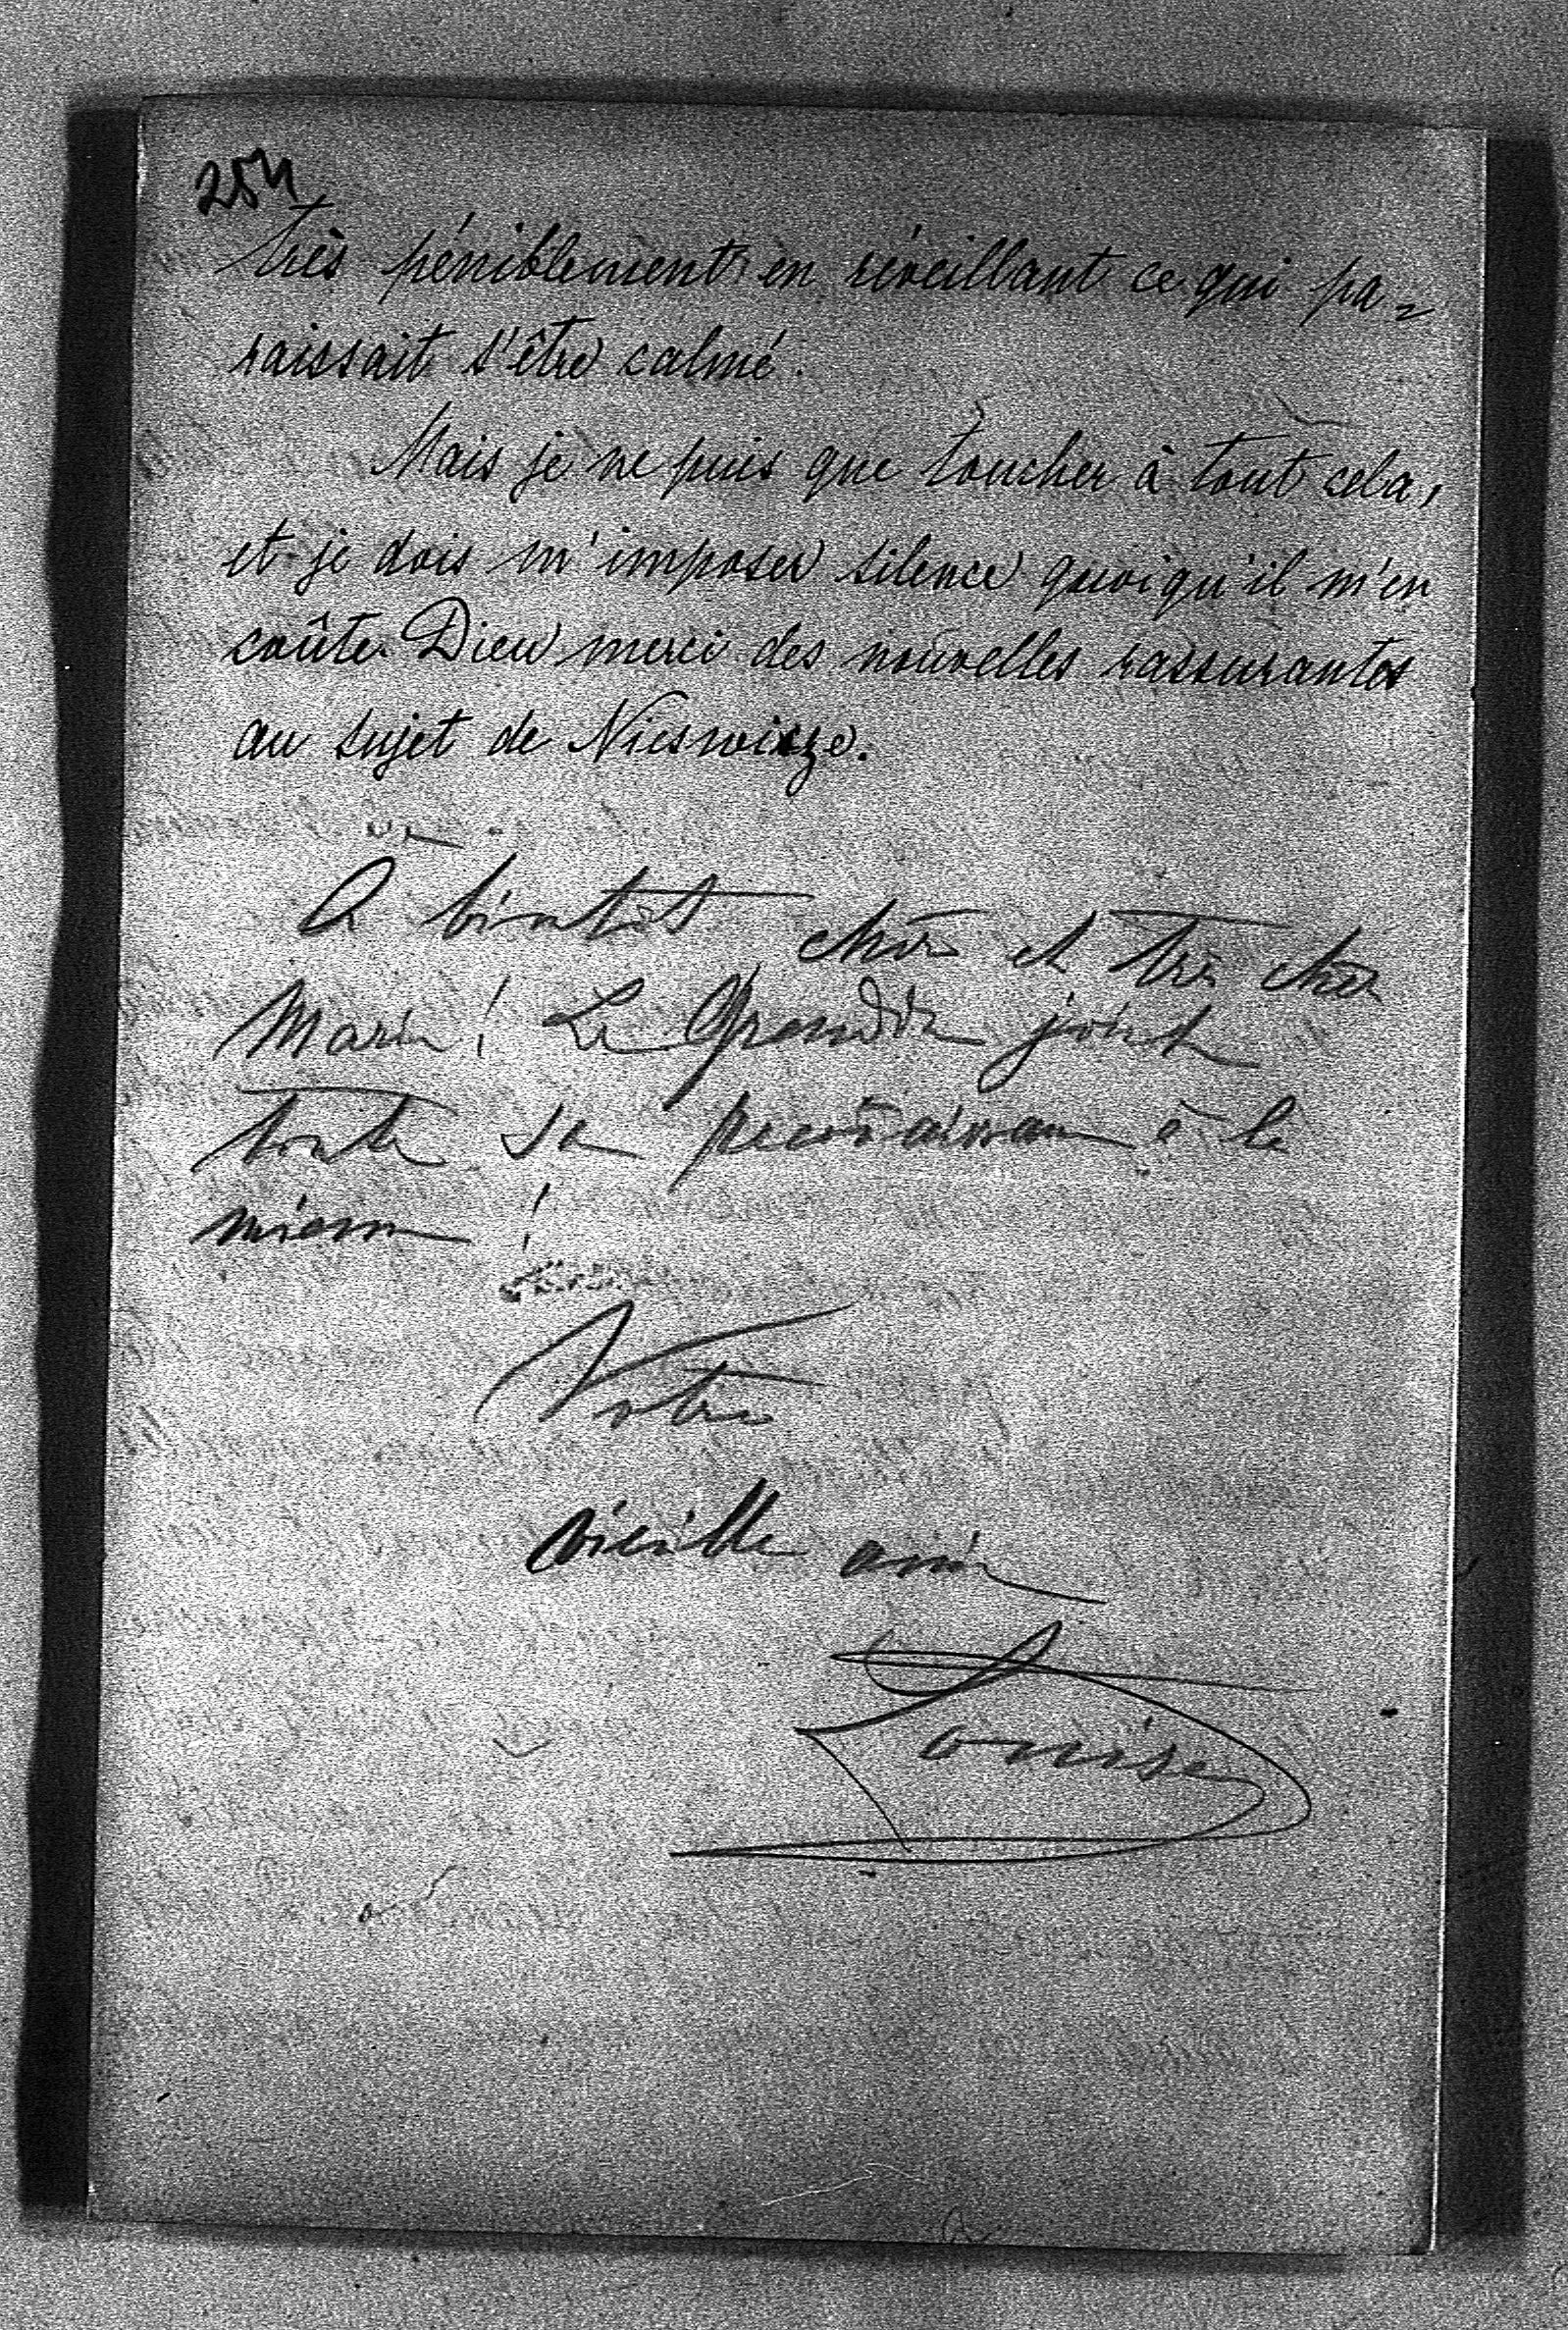 254
très péniblement en réveillant ce qui pa-
raissait s'être calmé.
Mais je ne puis que toucher à tout cela,
et je dois m'imposer silence quoiqu'il m'en
coûte. Dieu merci des nouvelles rassurantes
au sujet de Nieswieze.
A bientôt chère et très chère
Marie! Le joint
toute sa reconnaissance à la
mienne!
Votre
vieille amie
Louise